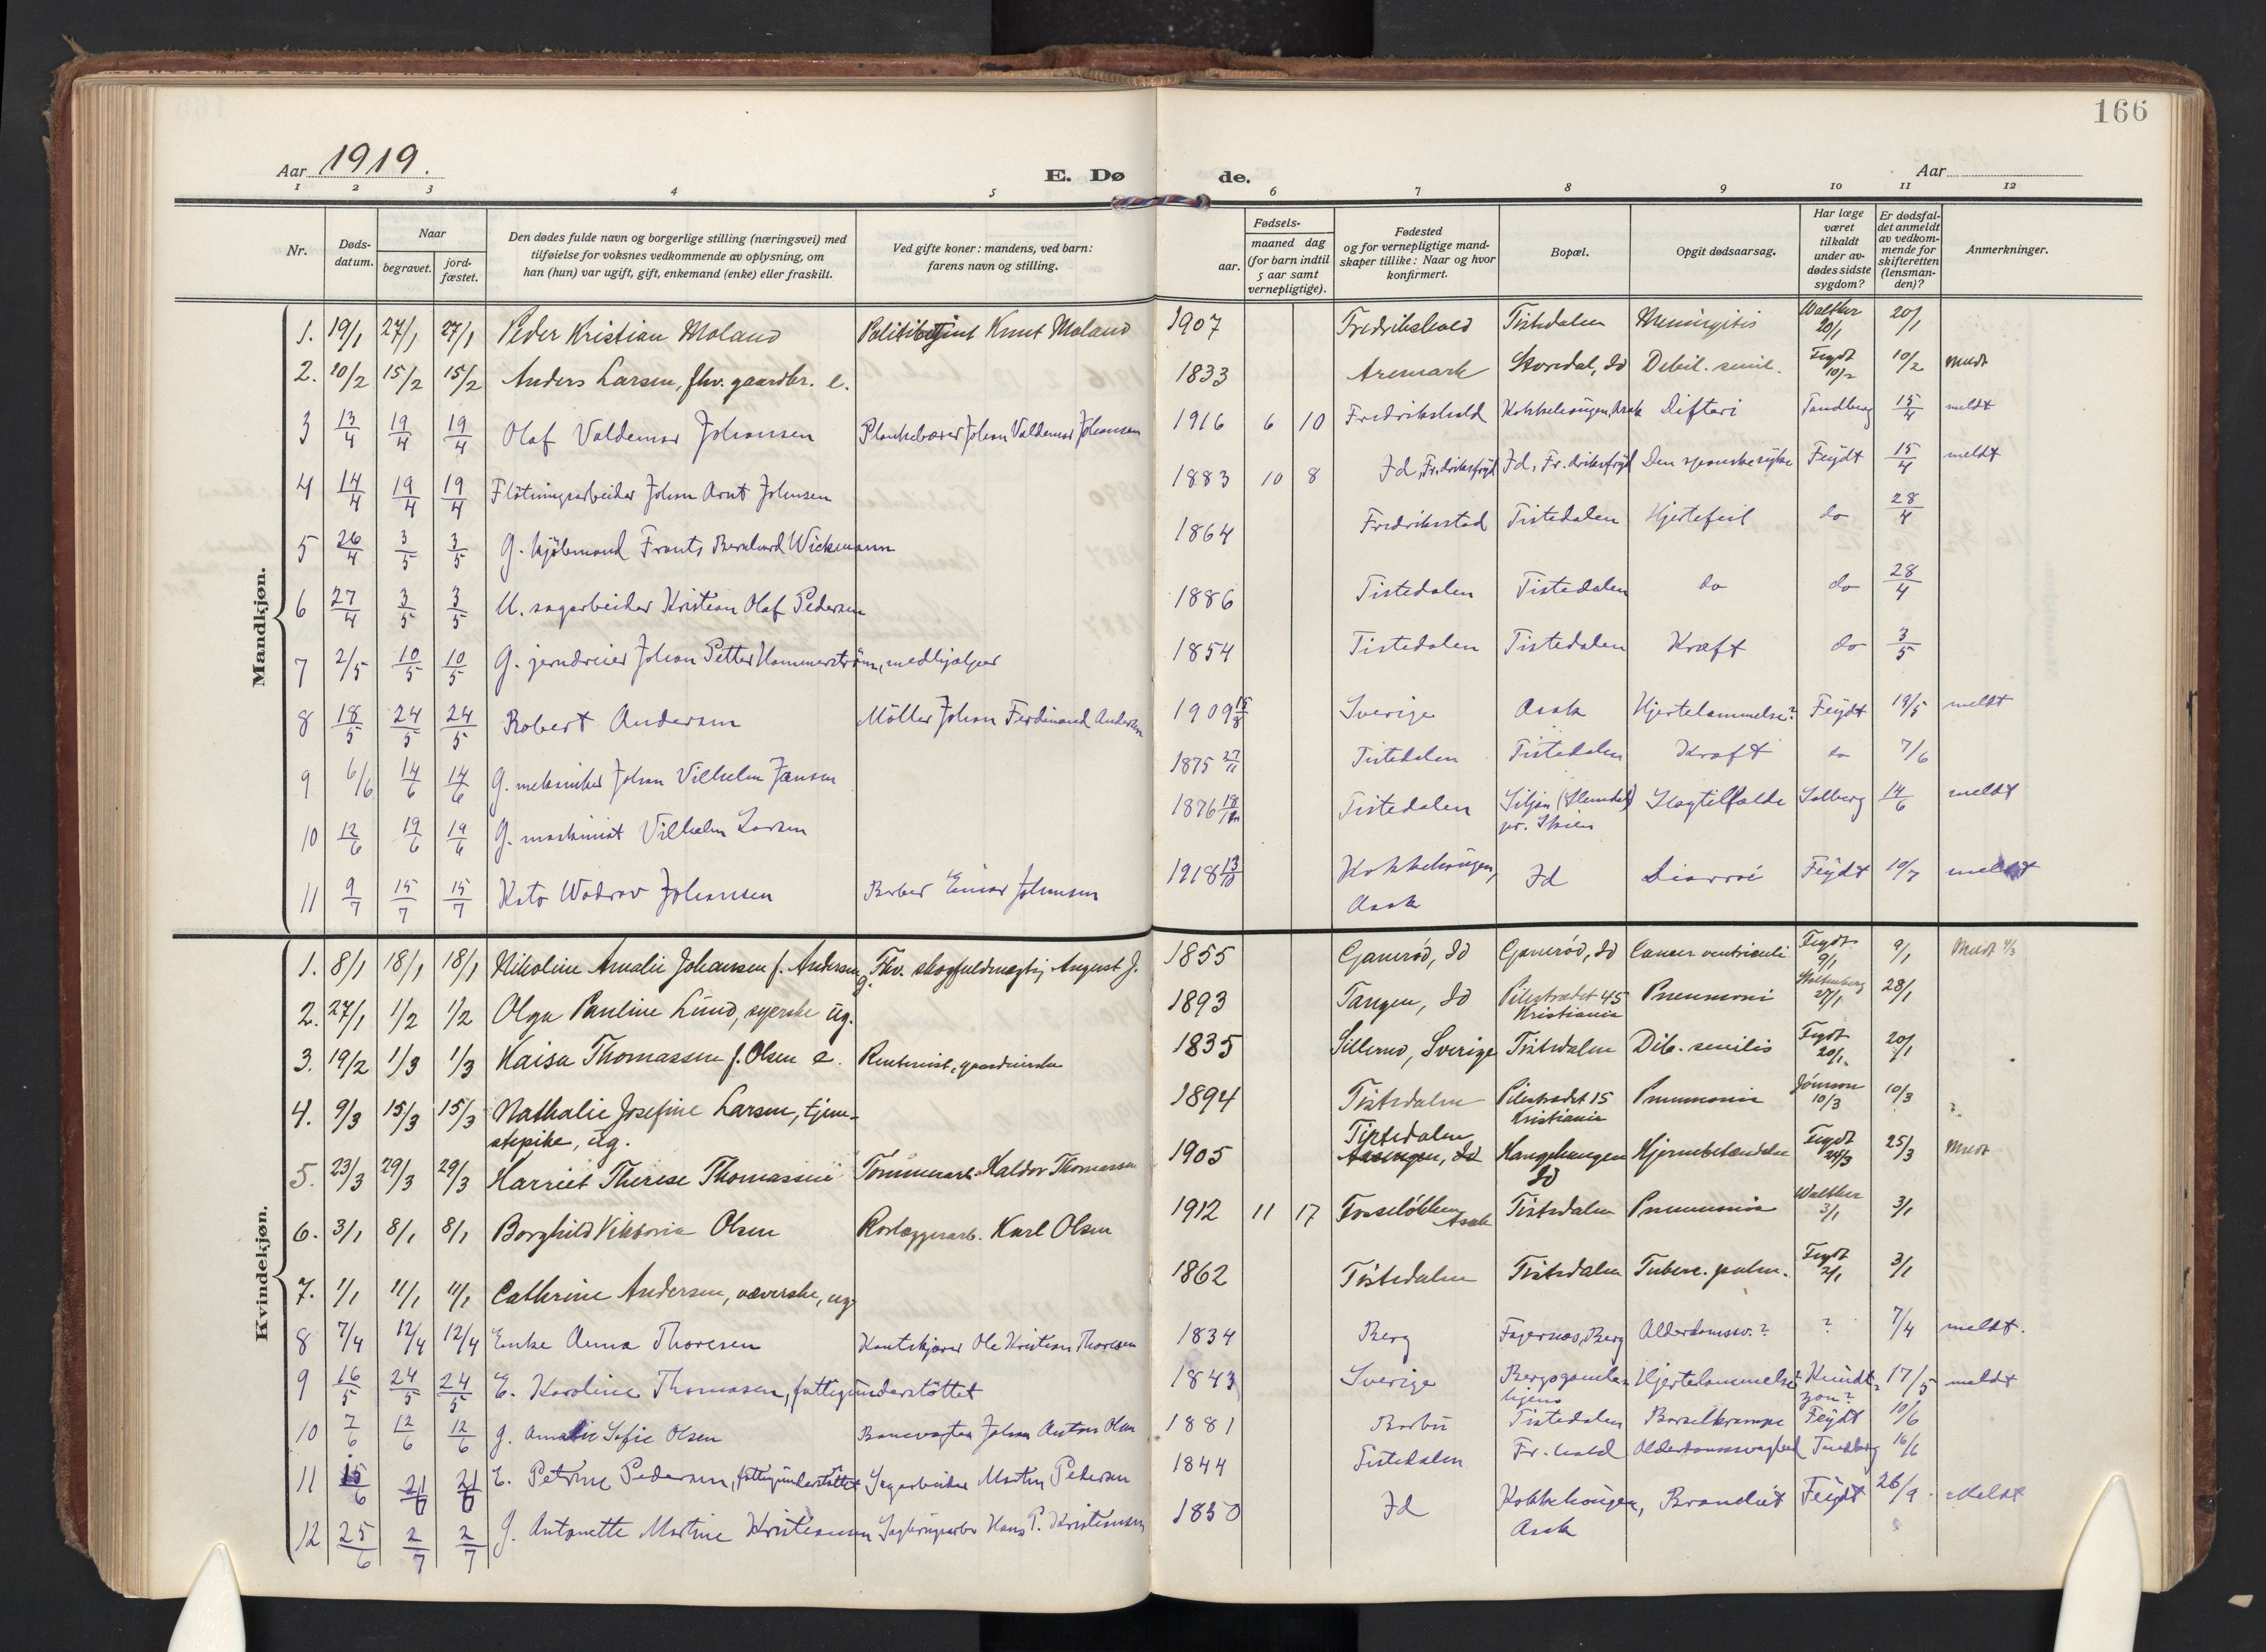 166
Aar 1919.
E. Dø de.
Aar
1 2 3 4 5 6 7 8 9 10 11 12
Nr.
Døds-
datum.
Naar
begravet.
jord-
fæstet.
Den dødes fulde navn og borgerlige stilling (næringsvei) med
tilføielse for voksnes vedkommende av oplysning, om
han (hun) var ugift, gift, enkemand (enke) eller fraskilt.
Ved gifte koner: mandens, ved barn:
farens navn og stilling.
Fødsels-
aar.
maaned dag
(for barn indtil
5 aar samt
vernepligtige).
Fødested
og for vernepligtige mand-
skaper tillike: Naar og hvor
konfirmert.
Bopæl.
Opgit dødsaarsag.
Har læge
været
tilkaldt
under av-
dødes sidste
sygdom?
Er dødsfal-
det anmeldt
av vedkom-
mende for
skifteretten
(lensman-
den)?
Anmerkninger.
Mandkjøn.
1. 19/1 27/1 27/1 Peder Kristian Moland Politibetjent Knut Moland 1907 Fredrikshald Tistedalen Meningitis Walther 20/1 20/1
2. 10/2 15/2 15/2 Anders Larsen, fhv. gaardbr. e. 1833 Aremark Skovdal, Id Debil. senil. Feydt 10/2 10/2 Meldt
3 13/4 19/4 19/4 Olaf Valdemar Johansen Plankebærer Johan Valdemar Johansen 1916 6 10 Fredrikshald Kokkehaugen, Asak Difteri Tandberg 15/4 meldt
4 14/4 19/4 19/4 Fløtningsarbeider Johan Arnt Johnsen 1883 10 8 Id, Fredriksfryd Id, Fredriksfryd Den spanske syke Feydt 15/4 meldt
5 26/4 3/5 3/5 G. hjölemand Frants Bernhard Wickmann 1864 Fredriksstad Tistedalen Hjertefeil do 28/4
6 27/4 3/5 3/5 U. sagarbeider Kristian Olaf Pedersen 1886 Tistedalen Tistedalen do do 28/4
7 2/5 10/5 10/5 G. jerndreier Johan Petter Hammerström, medhjælper 1854 Tistedalen Tistedalen Kræft do 3/5
8 18/5 24/5 24/5 Robert Andersen Möller Johan Ferdinand Andersen 1909 15/8 Sverige Asak Hjertelammelse? Feydt 19/5 meldt
9 6/6 14/6 14/6 G. mekaniker Johan Vilhelm Jansen 1875 27/11 Tistedalen Tistedalen Kræft do 7/6
10 12/6 19/6 19/6 G. maskinist Vilhelm Larsen 1876 Tistedalen Siljan (Slemdal) pr. Skien Slagtilfælde Solberg 14/6 meldt
11 9/7 15/7 15/7 Kato Wodrov Johansen Barber Einar Johansen 1918 13/10 Kokkehaugen, Asak Id Diarroé Feydt 10/7 meldt
Kvindekjøn.
1. 8/1 18/1 18/1 Nikoline Amalie Johansen f. Andersen g. Fhv. skogfuldmægtig August J. 1855 Ganerød, Id Ganerød, Id Cancer ventriculi Feydt 9/1 9/1 Meldt
2. 27/1 1/2 1/2 Olga Pauline Lund, syerske ug. 1893 Tangen, Id Pilestrædet 45 Kristiania Pneumoni Stoltenberg 27/1 28/1
3. 19/2 1/3 1/3 Kaisa Thomassen f. Olsen e. 1835 Sillerud, Sverige Tistedalen Deb. senilis Feydt 20/1 20/1
4. 9/3 15/3 15/3 Nathalie Josefine Larsen, tjene-
stepike, ug. 1894 Tistedalen Pilestrædet 15 Kristiania Pneumonia Jönsson 10/3 10/3
5. 23/3 29/3 29/3 Harriet Therese Thomassen Tømmerarb. Haldor Thomassen 1905 Tistedalen Haugehaugen Id Hjernebetændelse Feydt 24/3 25/3 Meldt
6. 3/1 8/1 8/1 Borghild Viktoria Olsen Rørlæggerarb. Karl Olsen 1912 11 17 Fosseløkken Asak Tistedalen Pneumonia Walther 3/1 3/1
7. 1/1 11/1 11/1 Cathrine Andersen, væverske, ug. 1862 Tistedalen Tistedalen Tuberc. pulm. Feydt 2/1 3/1
8 7/4 12/4 12/4 Enke Anna Thoresen Ole Kristian Thoresen 1834 Berg Fagernæs, Berg Alderdomssv.? ? 7/4 meldt.
9 16/5 24/5 24/5 E. Karoline Thomasen, fattigunderstöttet 1843 Sverige Bergs gamlehjem Hjertelammelse? Knudtzon? 17/5 meldt
10 7/6 12/6 12/6 g. Amalie Sofie Olsen Banevogter Johan Anton Olsen 1881 Barbu Tistedalen Barselkrampe Feydt 10/6
11 15/6 21/6 21/6 E. Petrine Pedersen, fattigunderstöttet Sagarbeider Martin Pedersen 1844 Tistedalen Fr.hald Alderdomssvaghed Tandberg 16/6
12 25/6 2/7 2/7 G. Antonette Martine Kristiansen Sagbrugsarb. Hans P. Kristiansen 1850 Id Kokkehaugen, Asak Brandsét Feydt 26/9 Meldt